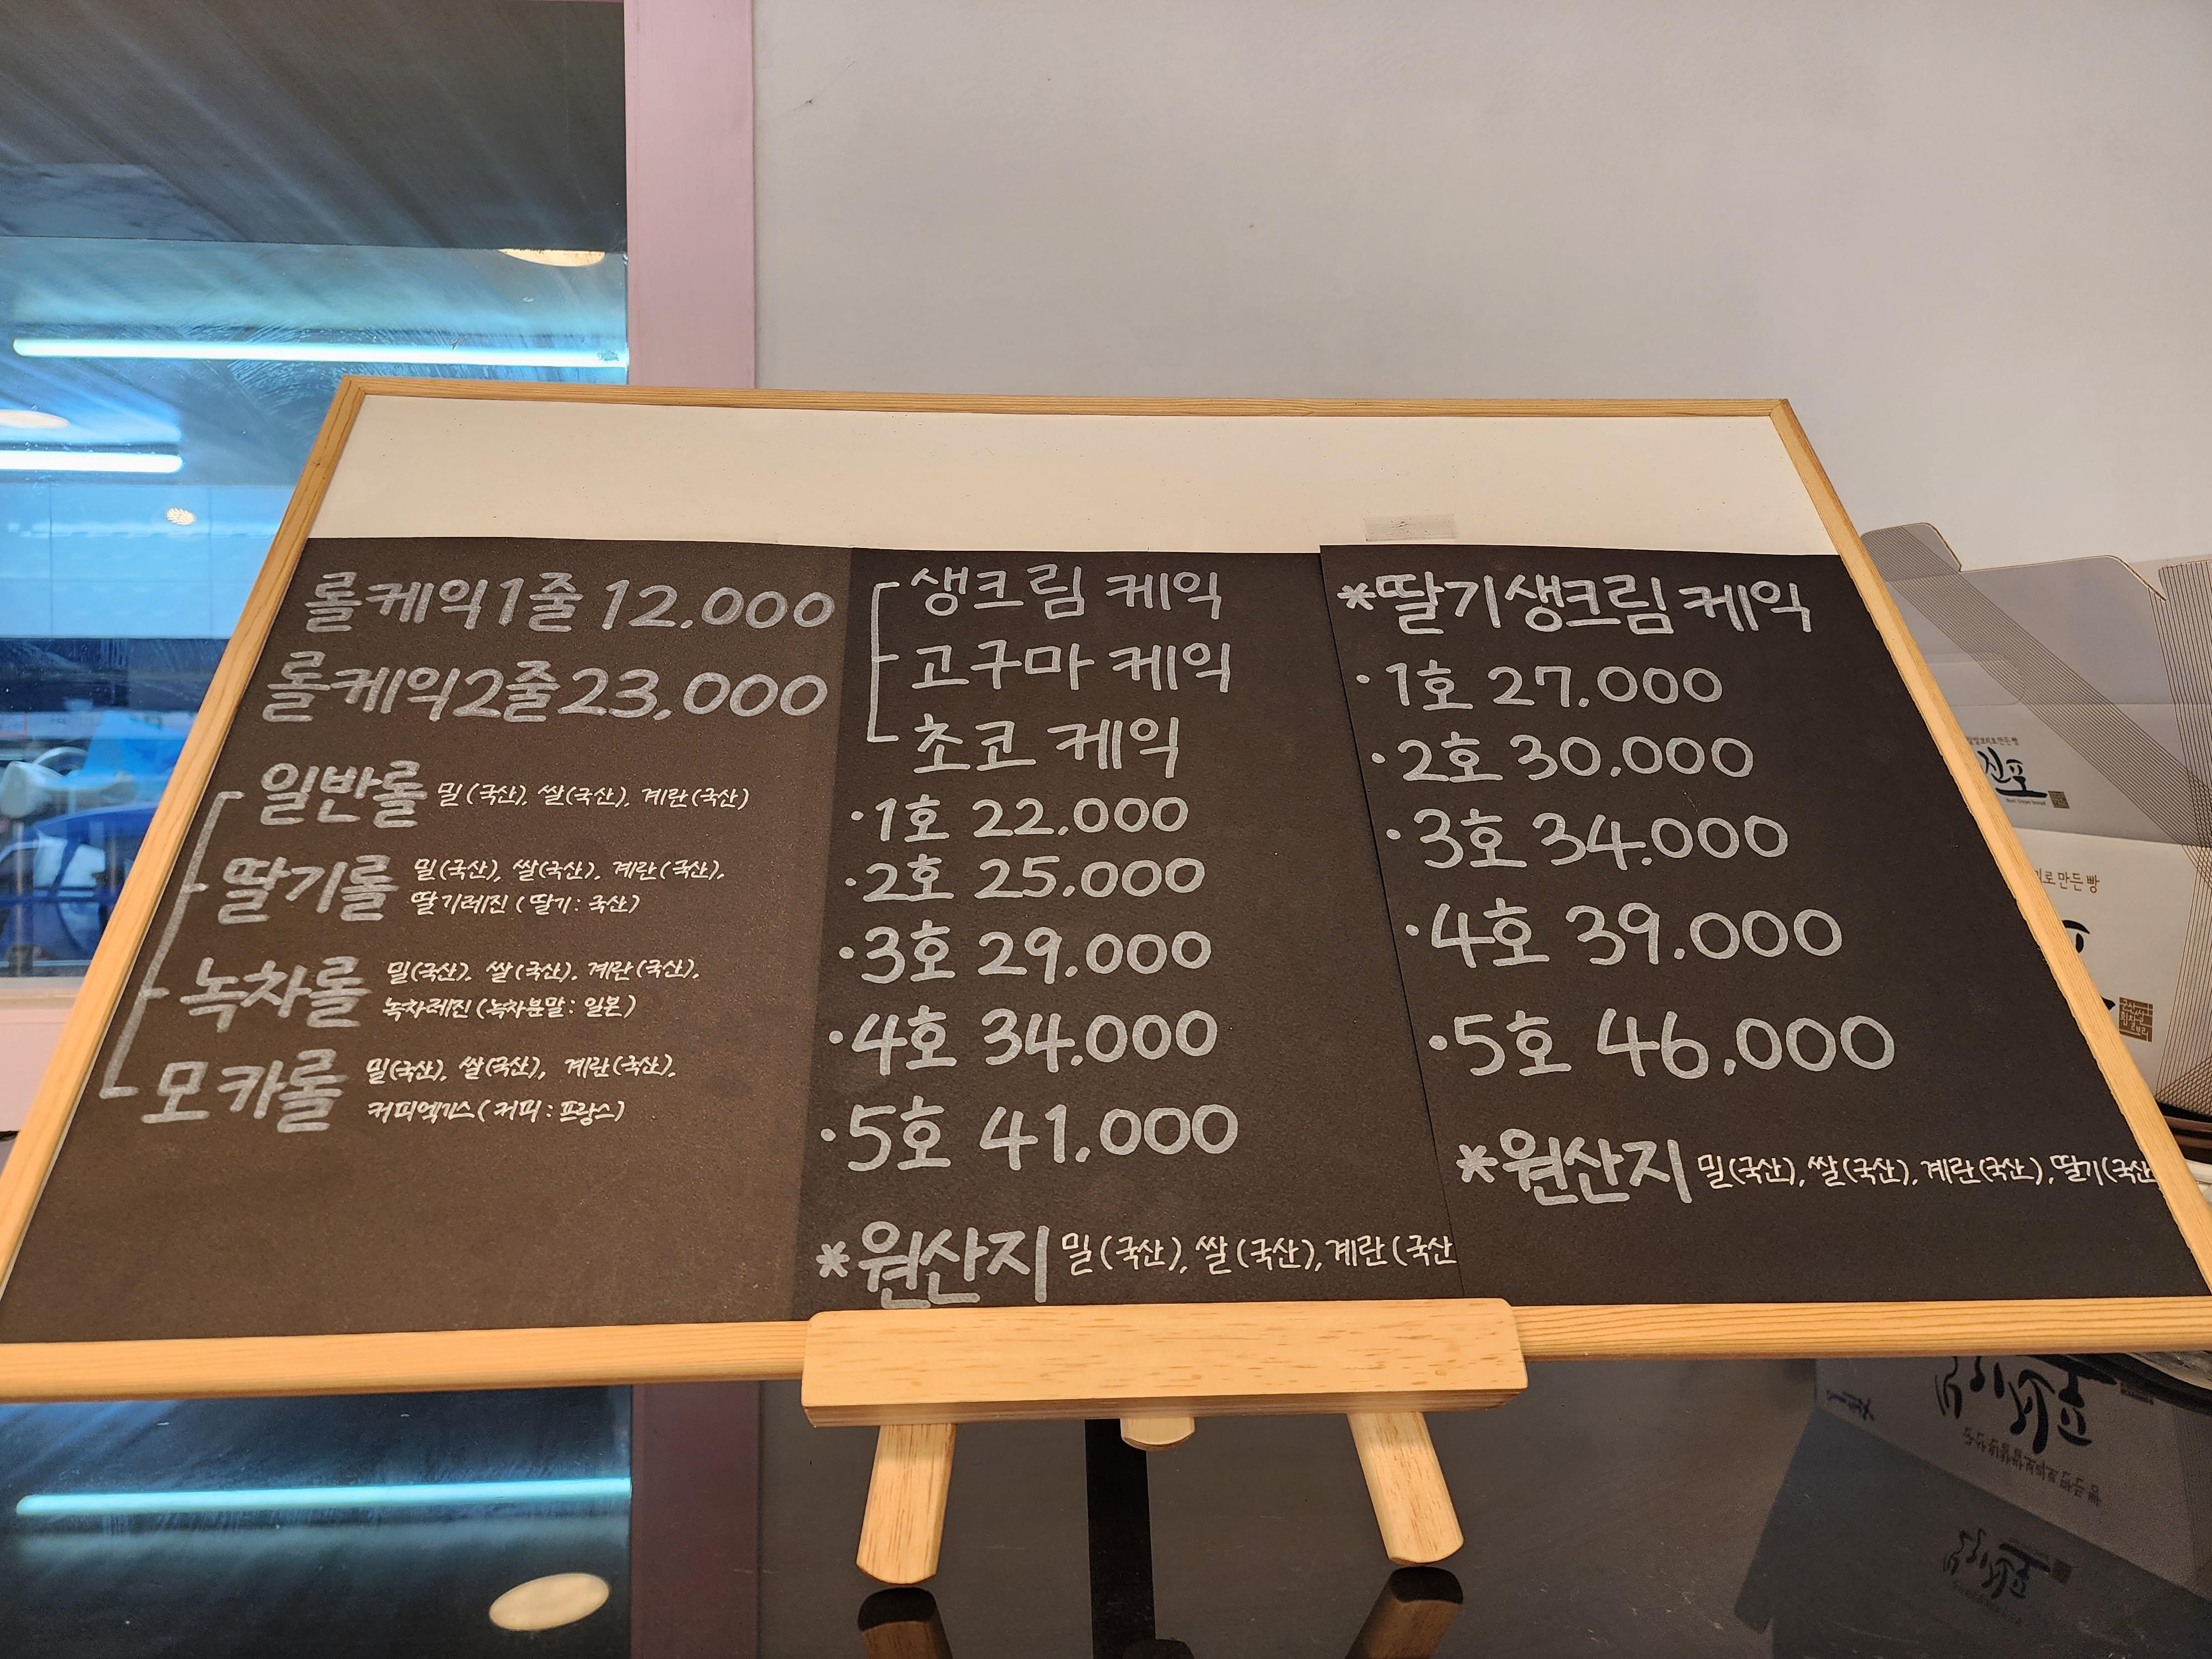 롤케익1줄 12.000
롤케익2줄 23,000
일반롤 밀(국산), 쌀(국산), 계란(국산)
딸기롤 밀(국산), 쌀(국산), 계란(국산),
딸기레진 (딸기: 국산)
녹차롤 밀(국산), 쌀(국산), 계란(국산),
녹차레진(녹차분말: 일본)
모카롤 밀(국산), 쌀(국산), 계란(국산),
커피엑기스(커피: 프랑스)
생크림 케익
고구마 케익
초코 케익
·1호 22.000
·2호 25.000
·3호 29.000
·4호 34.000
·5호 41.000
*원산지 밀(국산), 쌀(국산), 계란(국산
*딸기생크림케익
·1호 27.000
·2호 30.000
·3호 34.000
·4호 39.000
·5호 46.000
*원산지 밀(국산), 쌀(국산), 계란(국산), 딸기(국산
진포
로만든빵